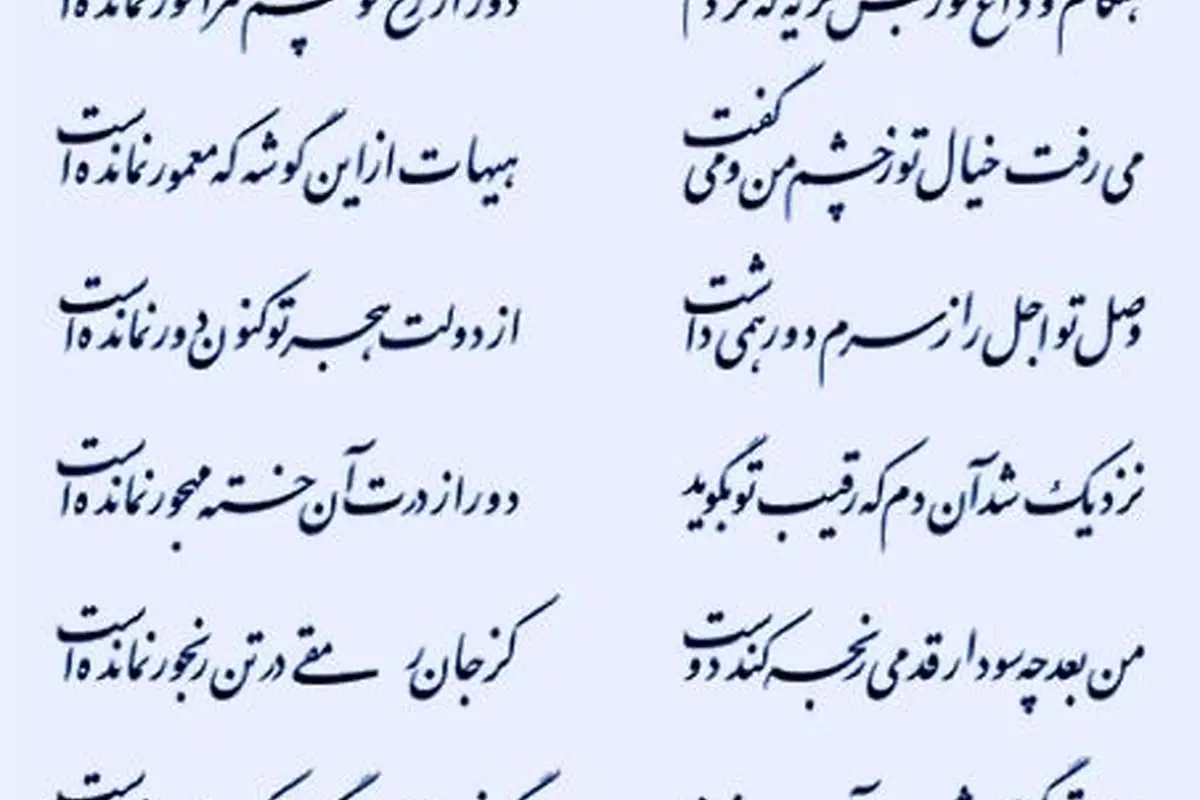 هنگام وداع تو ز بس گریه که کردم دور از رخ تو چشم مرا نور نمانده است
می رفت خیال تو ز چشم من و می گفت هیهات از این گوشه که معمور نمانده است
وصل تو اجل را ز سرم دور همی داشت از دولت هجر تو کنون دور نمانده است
نزدیک شد آن دم که رقیب تو بگوید دور از درت آن خسته مهجور نمانده است
من بعد چه سود ار قدمی رنجه کند دوست کز جان رمقی در تن رنجور نمانده است